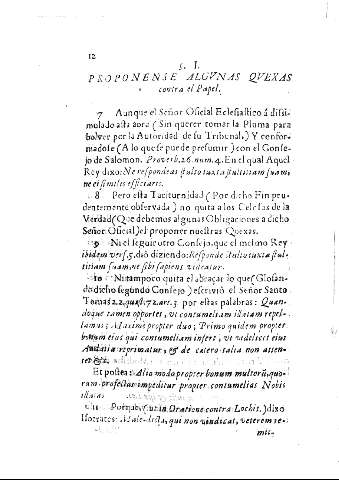 12
§. I.
PROPONENSE ALGVNAS QVEXAS
contra el Papel.
7 Aunque el Señor Oficial Eclesiastico á dissi-
mulado asta aora (Sin querer tomar la Pluma para
bolver por la Autoridad de su Tribunal,) Y confor-
madose (A lo que se puede presumir) con el Conse-
jo de Salomon. Proverb. 26. num. 4. En el qual Aquel
Rey dixo: Ne respondeas stulto iuxta stultitiam suam,
ne ei similis efficiaris.
8 Pero esta Taciturnidad (Por dicho Fin pru-
dentemente observada) no quita a los Celosos de la
Verdad (Que debemos algunas Obligaciones a dicho
Señor Oficial) el proponer nuestras Quexas.
9 Ni el seguir otro Consejo, que el mismo Rey
ibidem vers. 5. dió diziendo: Responde stulto iuxta stul-
titiam suam, ne sibi sapiens videatur.
10 Ni tampoco quita el abraçar lo que (Glosan-
do dicho segundo Consejo) escrivió el Señor Santo
Tomas 2.2. quæst. 72. art. 3. por estas palabras: Quan-
doque tamen oportet, vt contumeliam illatam repel-
lamus; Maxime propter duo; Primo quidem propter
bonum eius qui contumeliam infert, vt videlicet eius
Audatia reprimatur, & de cætero talia non atten-
tet.
Et postea: Alio modo propter bonum multorū, quo-
rum profectus impeditur propter contumelias Nobis
illatas
11 Porque, (ut in Oratione contra Lochit.) dixo
Isocrates: Maledicta, qui non vindicat, veterem re-
mit-